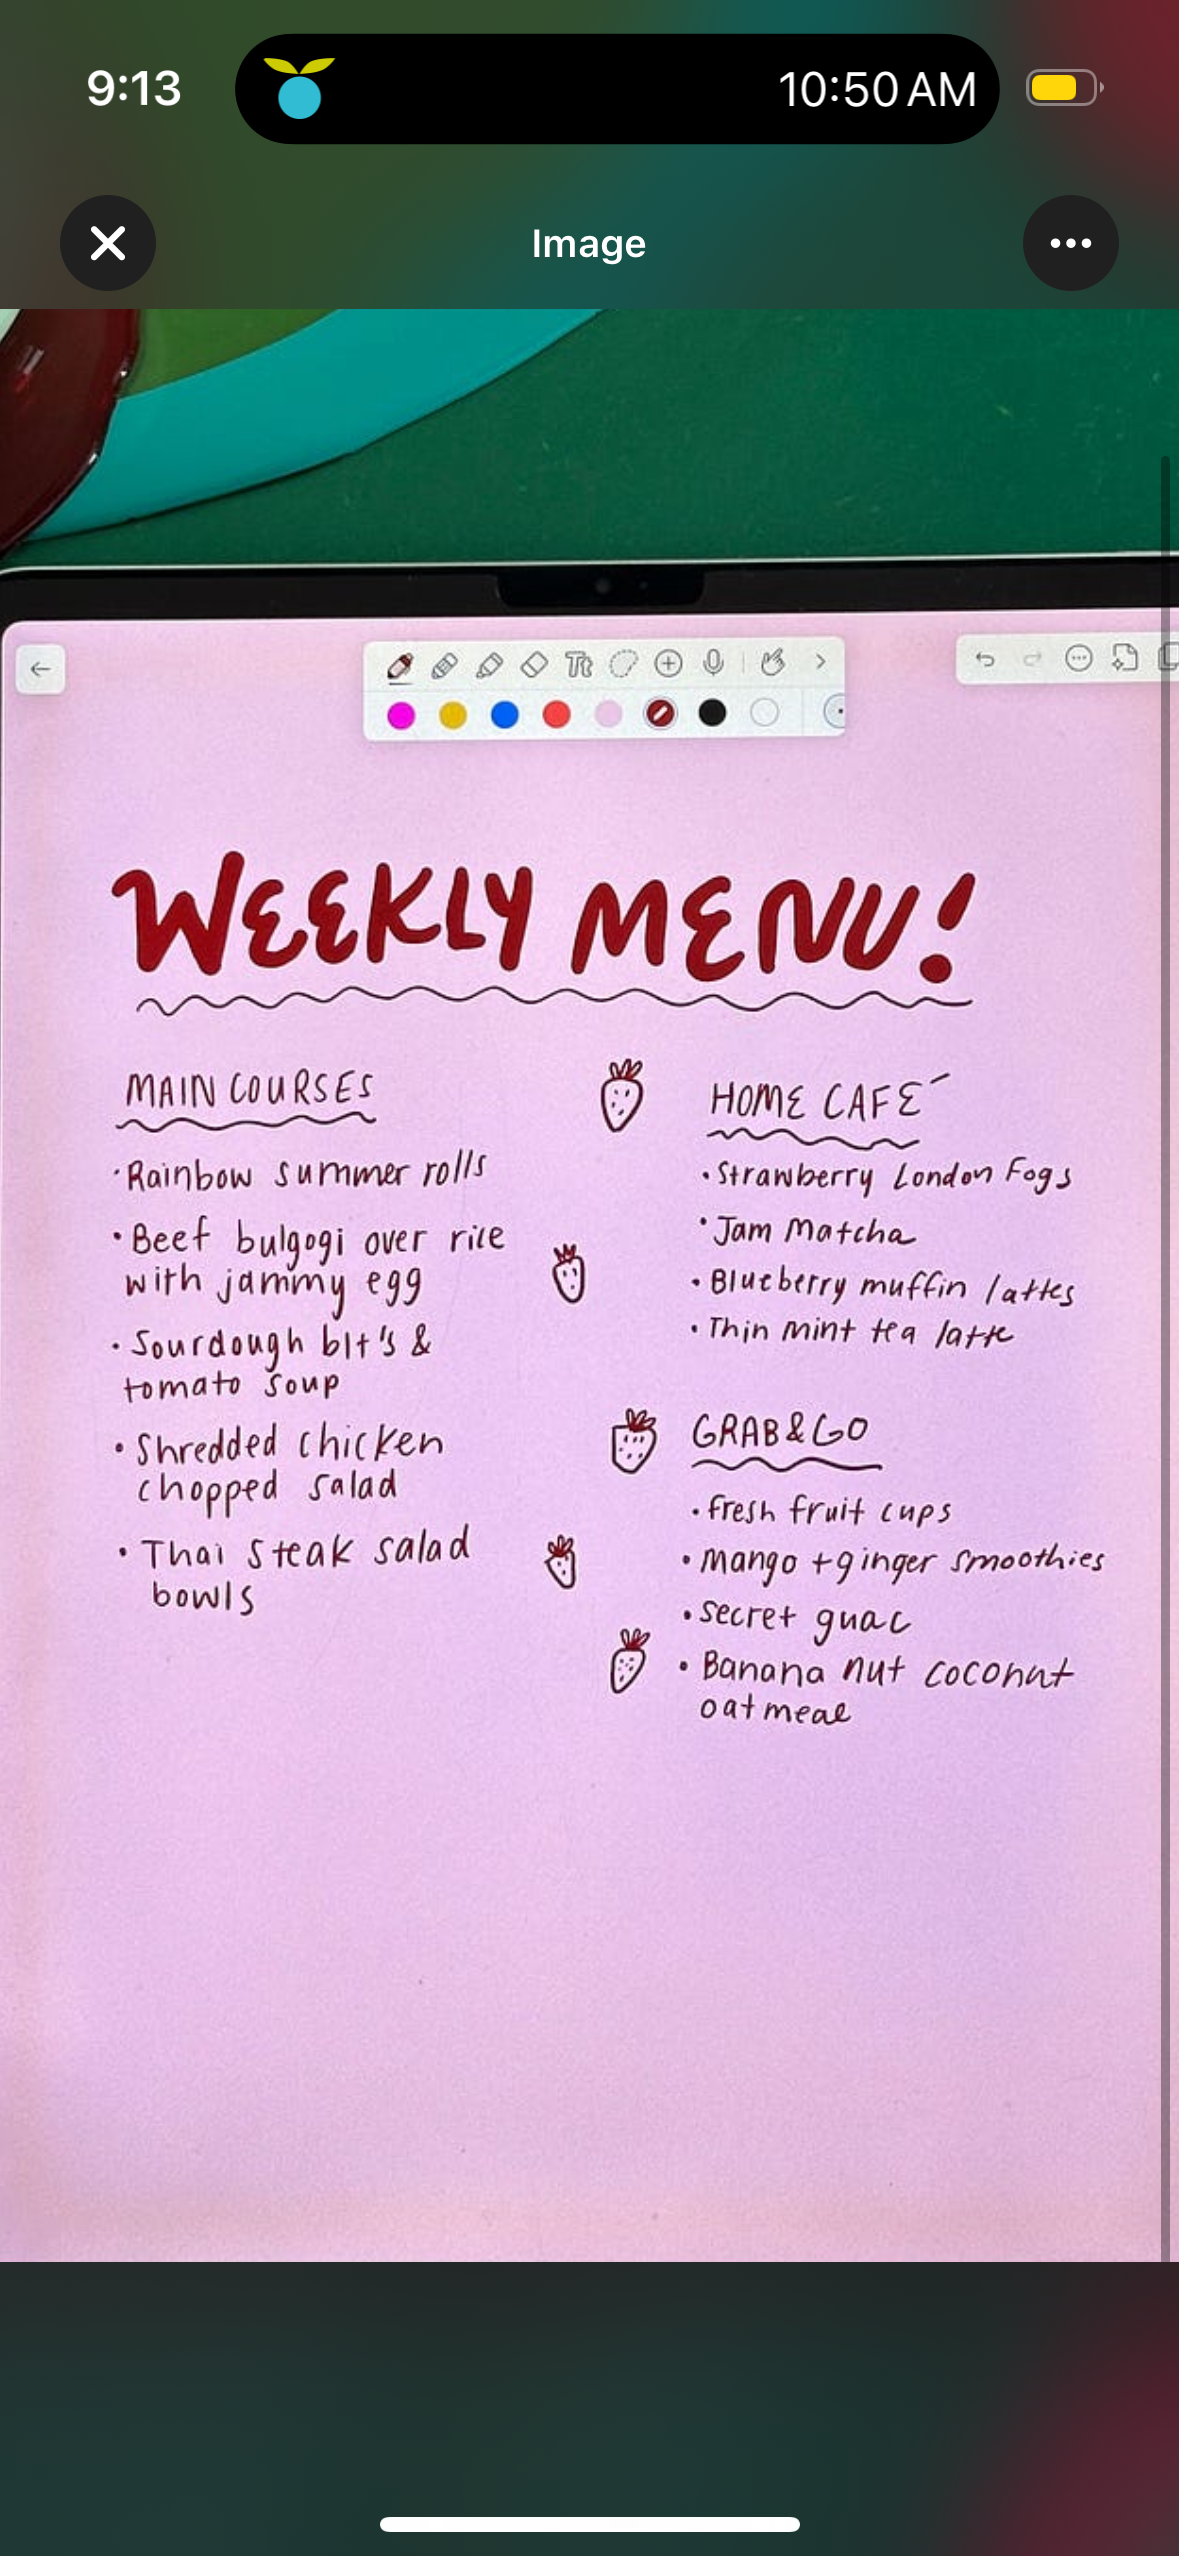 9:13
10:50 AM
Image
Tt
WEEKLY MENU!
MAIN COURSES
• Rainbow summer rolls
• Beef bulgogi over rice
with jammy egg
• Sourdough blt's &
tomato soup
• Shredded chicken
chopped salad
• Thai steak salad
bowls
HOME CAFÉ
• Strawberry London Fogs
• Jam Matcha
• Blueberry muffin lattes
• Thin mint tea latte
GRAB & GO
• fresh fruit cups
• Mango + ginger smoothies
• secret guac
• Banana nut coconut
oatmeal